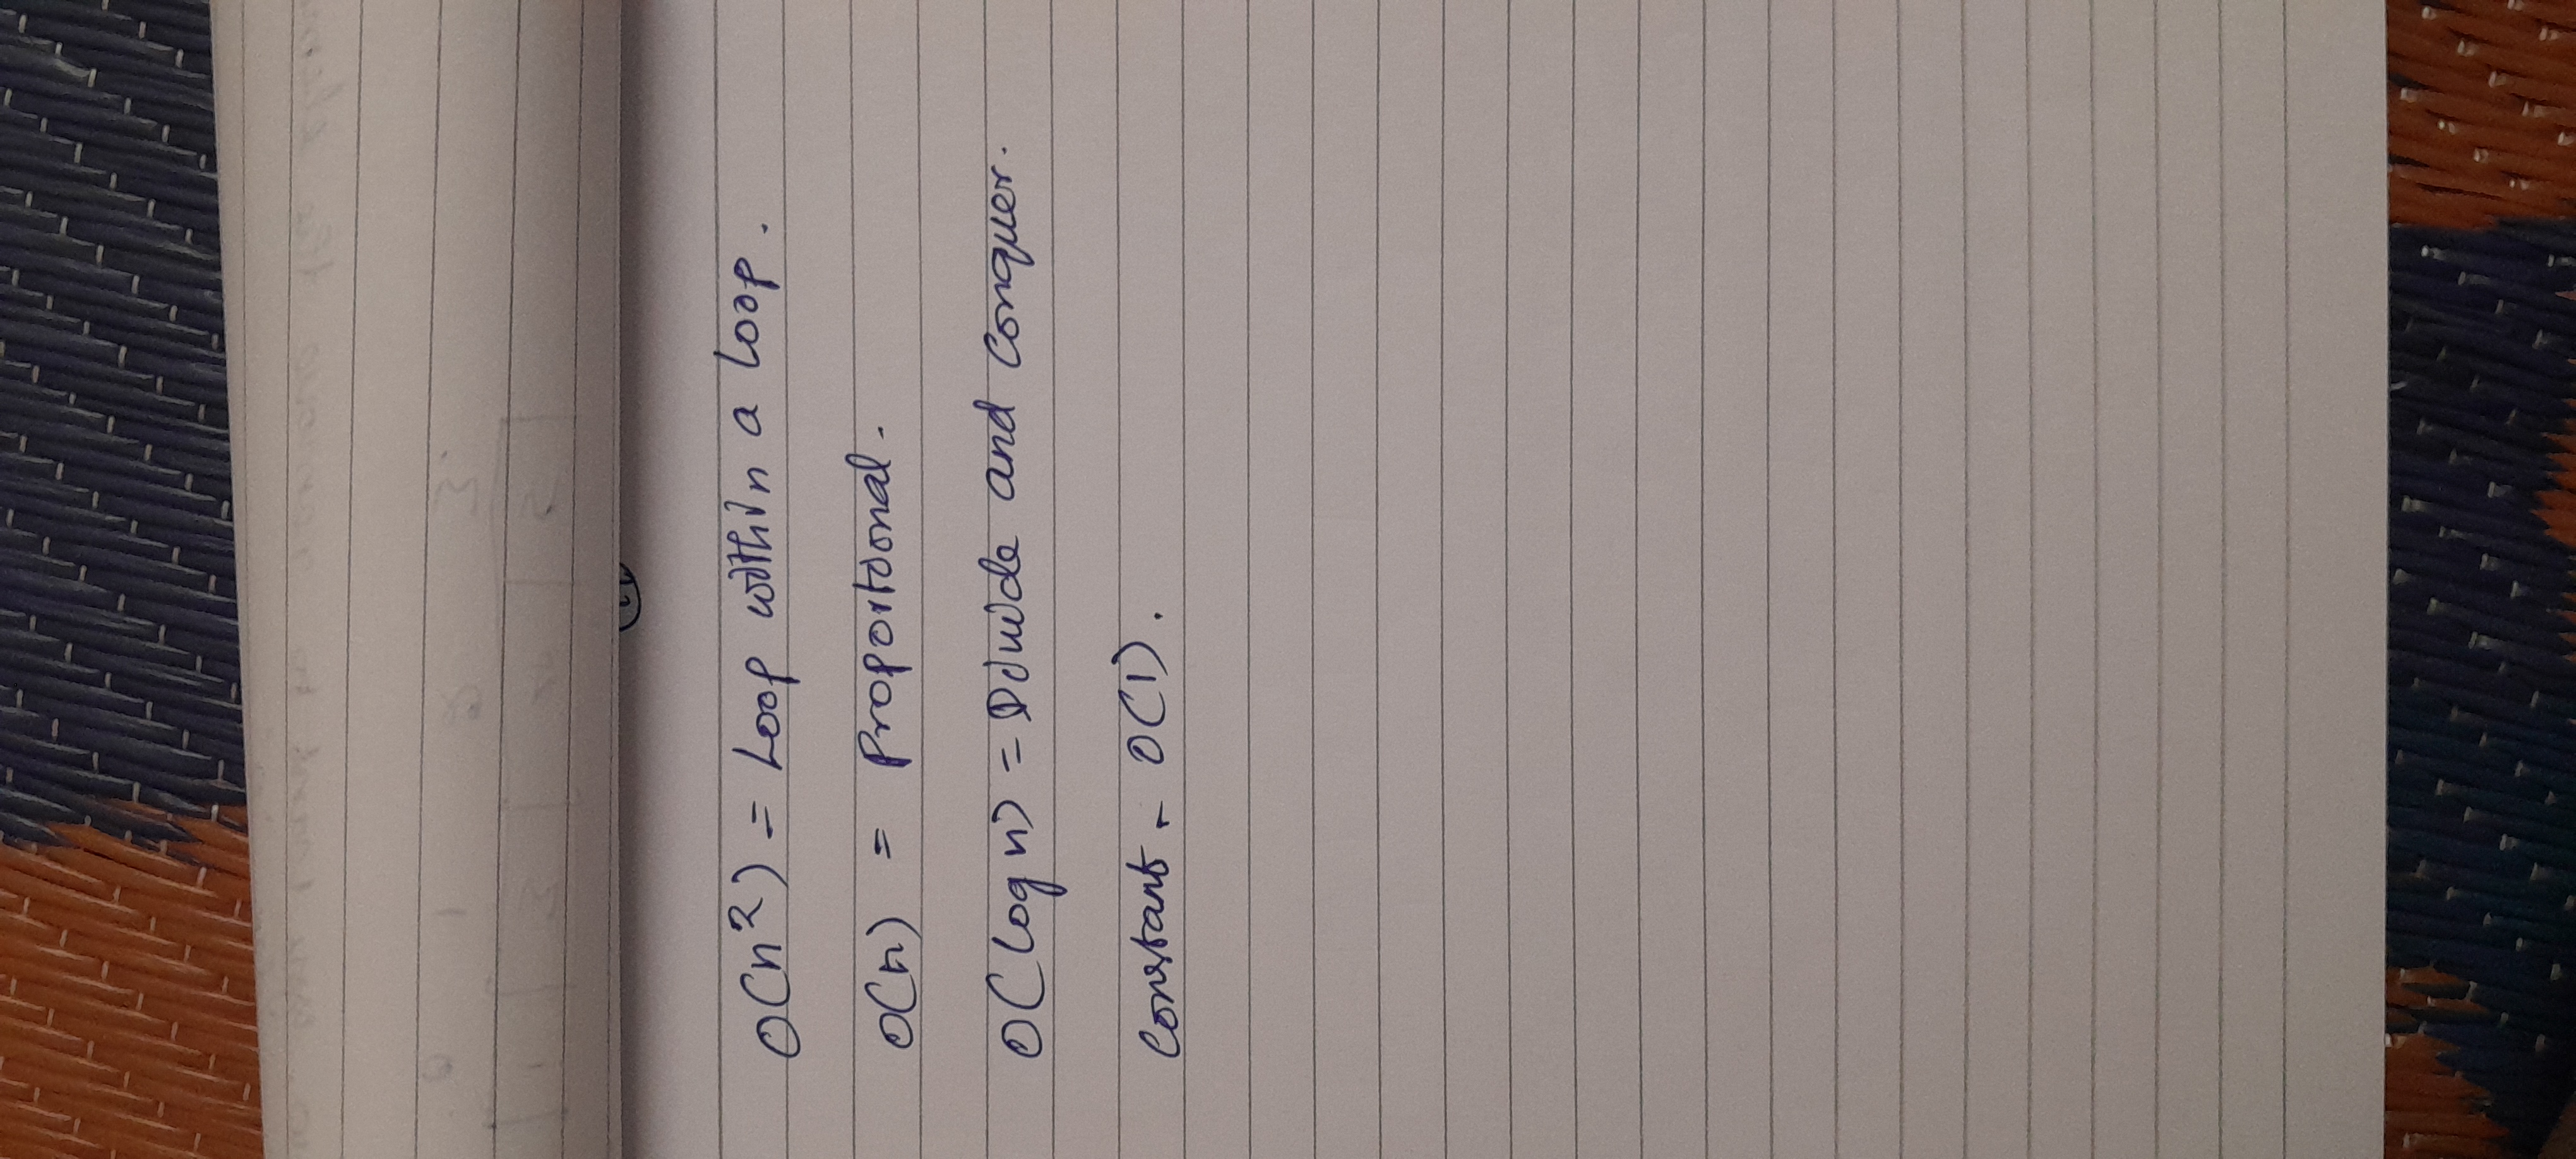 O(n²) = Loop within a loop.
O(n) = Proportional.
O(log n) = Divide and conquer.
constant - O(1).